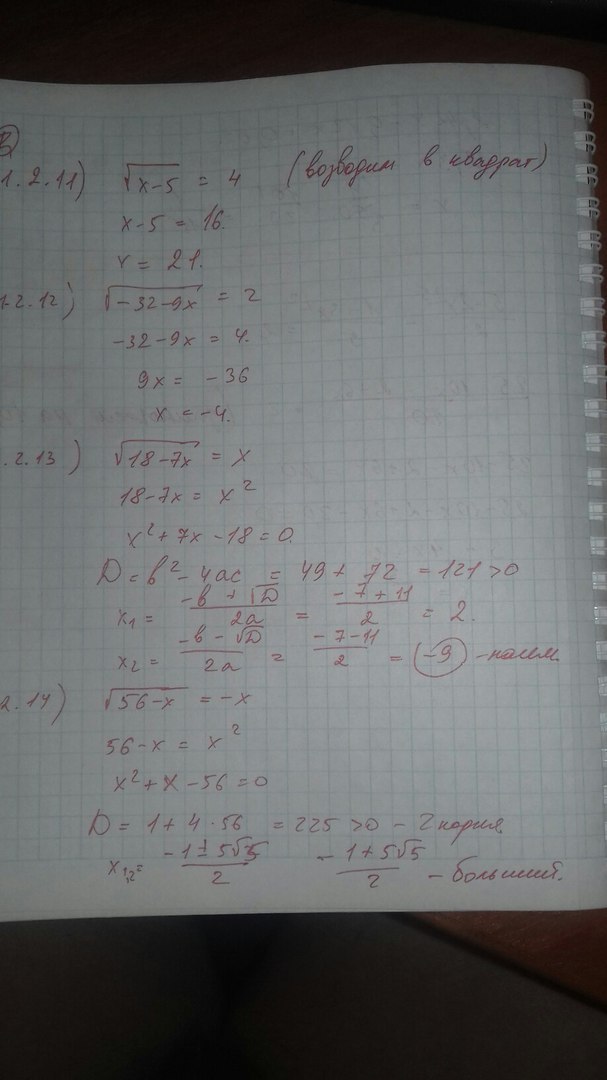 В
1.2.11) √x-5 = 4 (возводим в квадрат)
x-5 = 16.
x = 21.
1.2.12) √-32-9x = 2
-32-9x = 4.
9x = -36
x = -4.
.2.13) √18-7x = x
18-7x = x²
x²+7x-18=0.
D = b²-4ac = 49+72 = 121 >0
x₁ = -b+√D / 2a = -7+11 / 2 = 2.
x₂ = -b-√D / 2a = -7-11 / 2 = -9
2.14) √56-x = -x
56-x = x²
x²+x-56=0
D = 1+4·56 = 225 >0 - 2 корня.
x₁,₂= -1±5√5 / 2 -1+5√5 / 2 - больший.